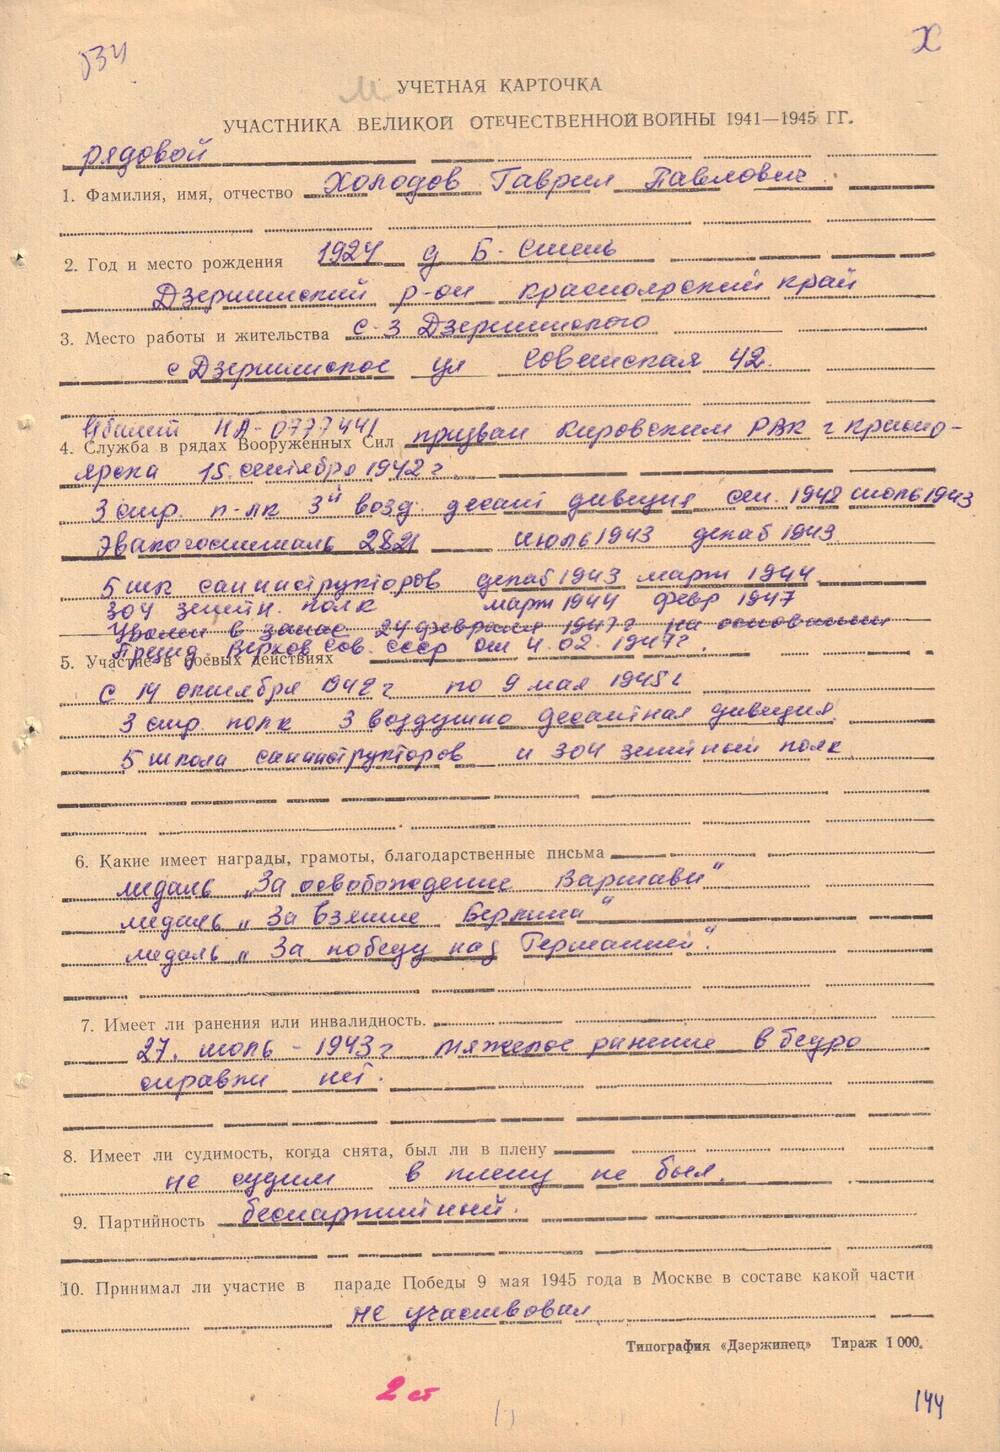 534
Х
УЧЕТНАЯ КАРТОЧКА
УЧАСТНИКА ВЕЛИКОЙ ОТЕЧЕСТВЕННОЙ ВОЙНЫ 1941—1945 ГГ.
рядовой
1. Фамилия, имя, отчество Холодов Гаврил Павлович
2. Год и место рождения 1924 д Б-Степь
Дзержинский р-он Красноярский край
3. Место работы и жительства с-з Дзержинского
с Дзержинское ул Советская 42.
в/билет НА-0777441
4. Служба в рядах Вооруженных Сил призван Кировским РВК г Красно-
ярска 15. сентября 1942 г.
3 стр. п-лк 3й возд. десант дивизия сен. 1942 июль 1943
Эвакогоспиталь 2821 июль 1943 декаб 1943
5 шк санинструкторов декаб 1943 март 1944
304 зенитн. полк март 1944 февр 1947
Уволен в запас 24 февраля 1947 г на основании
Презид Верхов Сов. СССР от 4.02.1947 г.
5. Участие в боевых действиях
с 14 октября 1942 г по 9 мая 1945 г
3 стр. полк 3 воздушно десантная дивизия
5 школа санинструкторов и 304 зенитный полк
6. Какие имеет награды, грамоты, благодарственные письма
медаль „За освобождение Варшавы"
медаль „За взятие Берлина"
медаль „За победу над Германией".
7. Имеет ли ранения или инвалидность.
27. июль - 1943 г тяжелое ранение в бедро
справки нет.
8. Имеет ли судимость, когда снята, был ли в плену
не судим в плену не был.
9. Партийность беспартийный.
10. Принимал ли участие в параде Победы 9 мая 1945 года в Москве в составе какой части
не участвовал
Типография «Дзержинец» Тираж 1 000.
2 ст
144